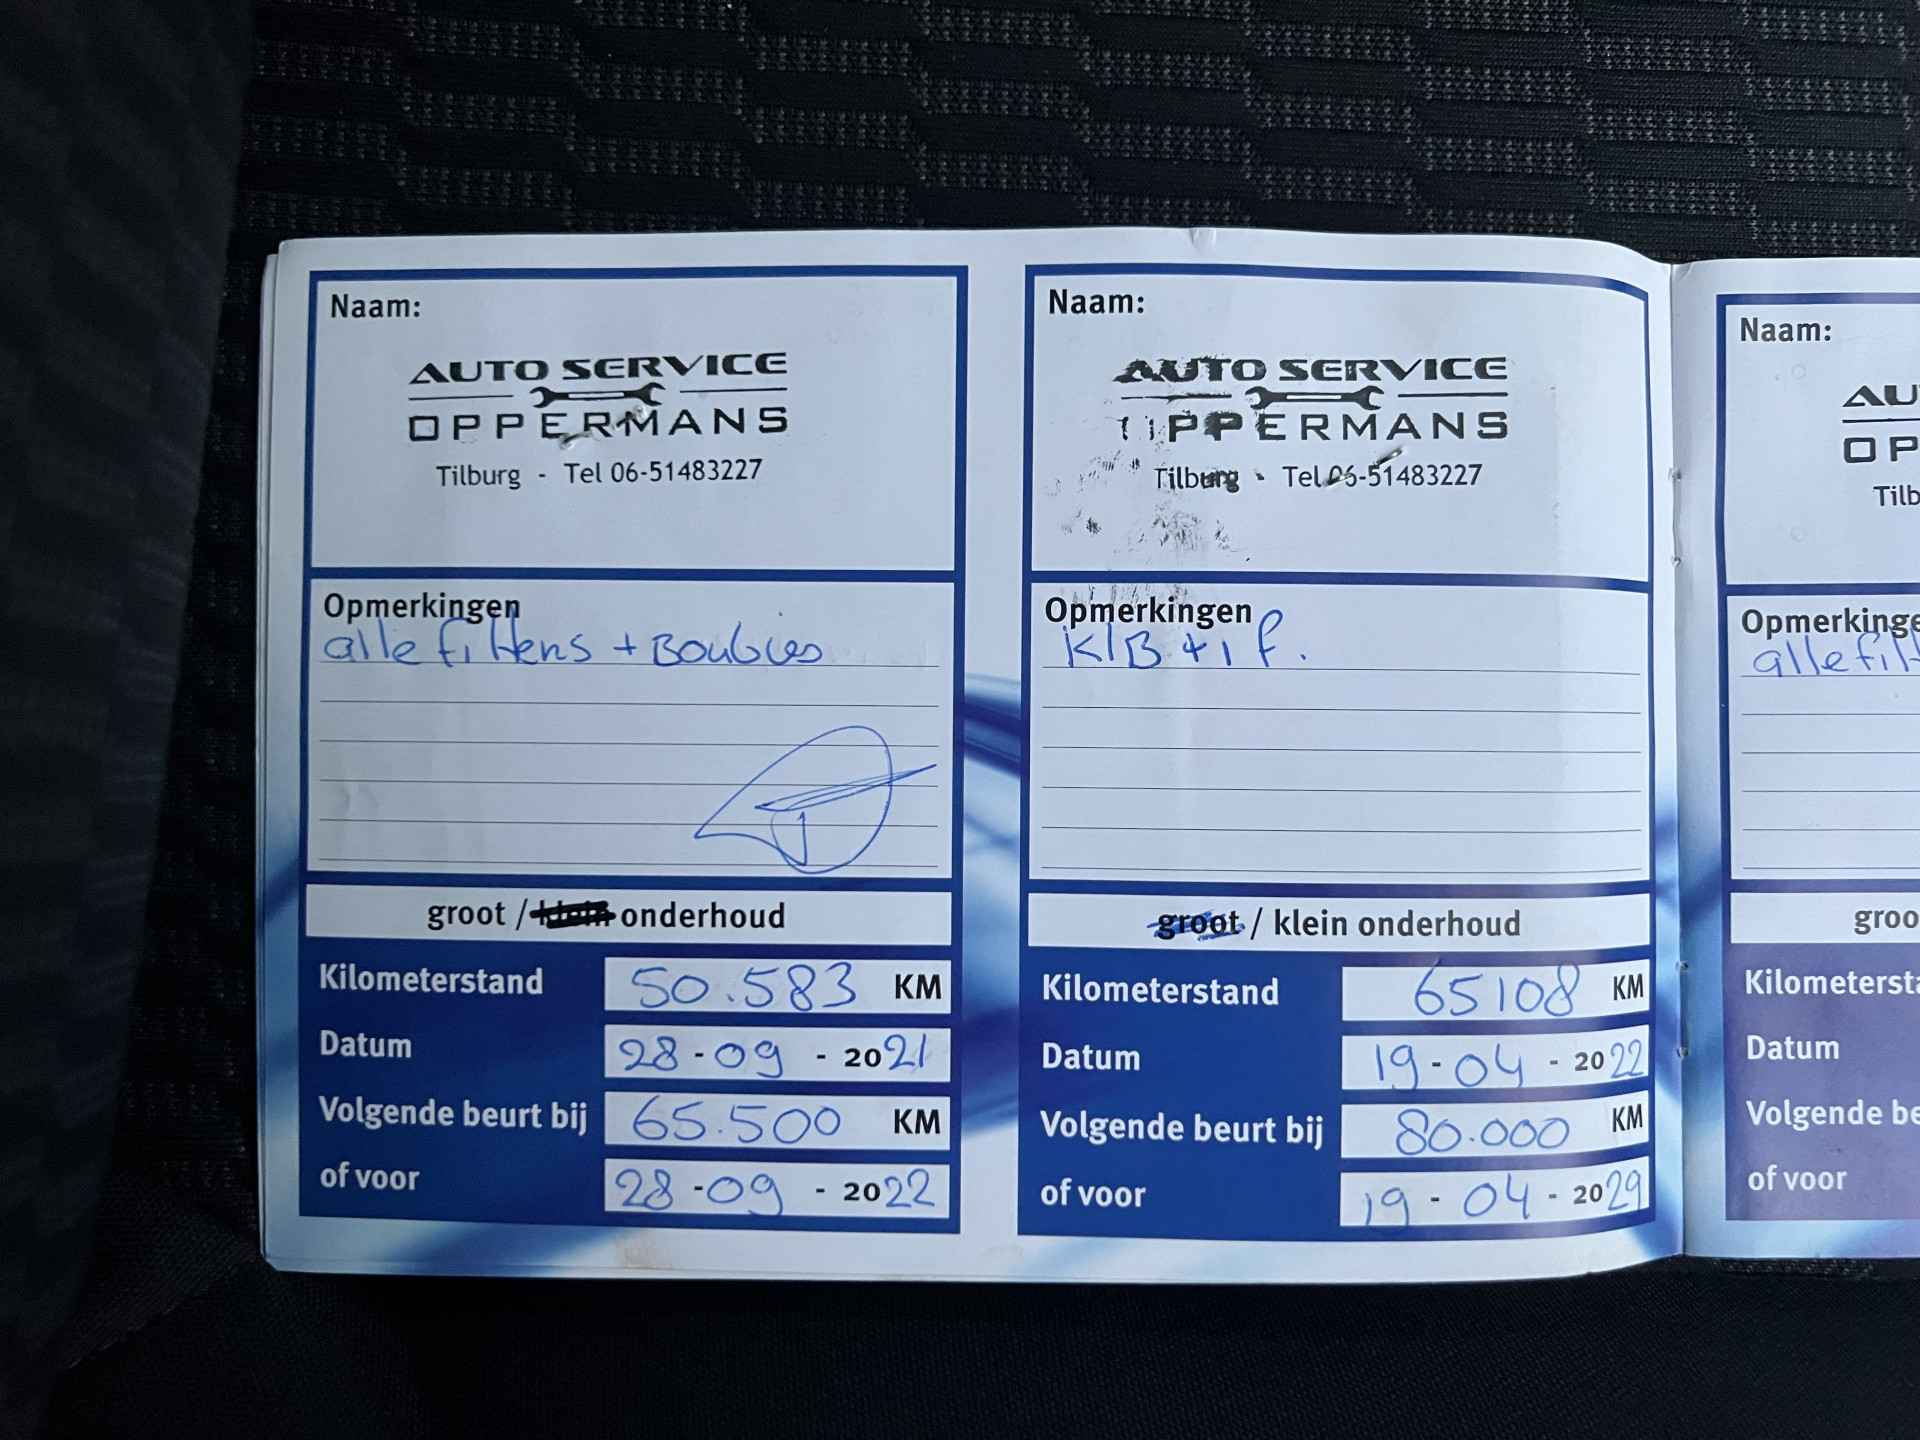 Naam:
AUTO SERVICE
OPPERMANS
Tilburg - Tel 06-51483227
Opmerkingen
alle filters + Boubies
groot / klein onderhoud
Kilometerstand 50.583 KM
Datum 28-09-2021
Volgende beurt bij 65.500 KM
of voor 28-09-2022
Naam:
AUTO SERVICE
OPPERMANS
Tilburg - Tel 06-51483227
Opmerkingen
KlB + i f.
groot / klein onderhoud
Kilometerstand 65108 KM
Datum 19-04-2022
Volgende beurt bij 80.000 KM
of voor 19-04-2029
Naam:
AU
OP
Tilb
Opmerkinge
alle filt
groo
Kilometersta
Datum
Volgende be
of voor